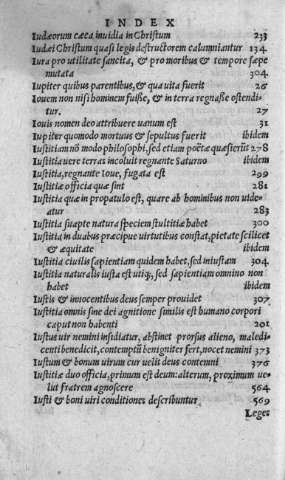 INDEX
Iudæorum cæca inuidia in Christum 233
Iudæi Christum quasi legis destructorem calumniantur 134
Iura pro utilitate sancita, & pro moribus & tempore sæpe
mutata 304
Iupiter quibus parentibus, & qua uita fuerit 26
Iouem non nisi hominem fuisse, & in terra regnasse ostendi
tur. 27
Iouis nomen deo attribuere uanum est 31
Iupiter quomodo mortuus & sepultus fuerit ibidem
Iustitiam nō modo philosophi, sed etiam poetæ quæsierūt 278
Iustitia uere terras incoluit regnante Saturno ibidem
Iustitia, regnante Ioue, fugata est 299
Iustitia officia quæ sint 281
Iustitia quæ in propatulo est, quare ab hominibus non uide
atur 283
Iustitia suapte natura speciem stultitiæ habet 300
Iustitia in duabus præcipue uirtutibus constat, pietate scilicet
& æquitate ibidem
Iustitia ciuilis sapientiam quidem habet, sed iniustam 304
Iustitia naturalis iusta est utiq;, sed sapientiam omnino non
habet ibidem
Iustis & innocentibus deus semper prouidet 307
Iustitia omnis sine dei agnitione similis est humano corpori
caput non habenti 201
Iustus uir nemini insidiatur, abstinet prorsus alieno, maledi
centi benedicit, contemptū benigniter fert, nocet nemini 373
Iustum & bonum uirum cur uelit deus contemni 376
Iustitiæ duo officia, primum est deum: alterum, proximum ue
lut fratrem agnoscere 564
Iusti & boni uiri conditiones describuntur 569
Leges